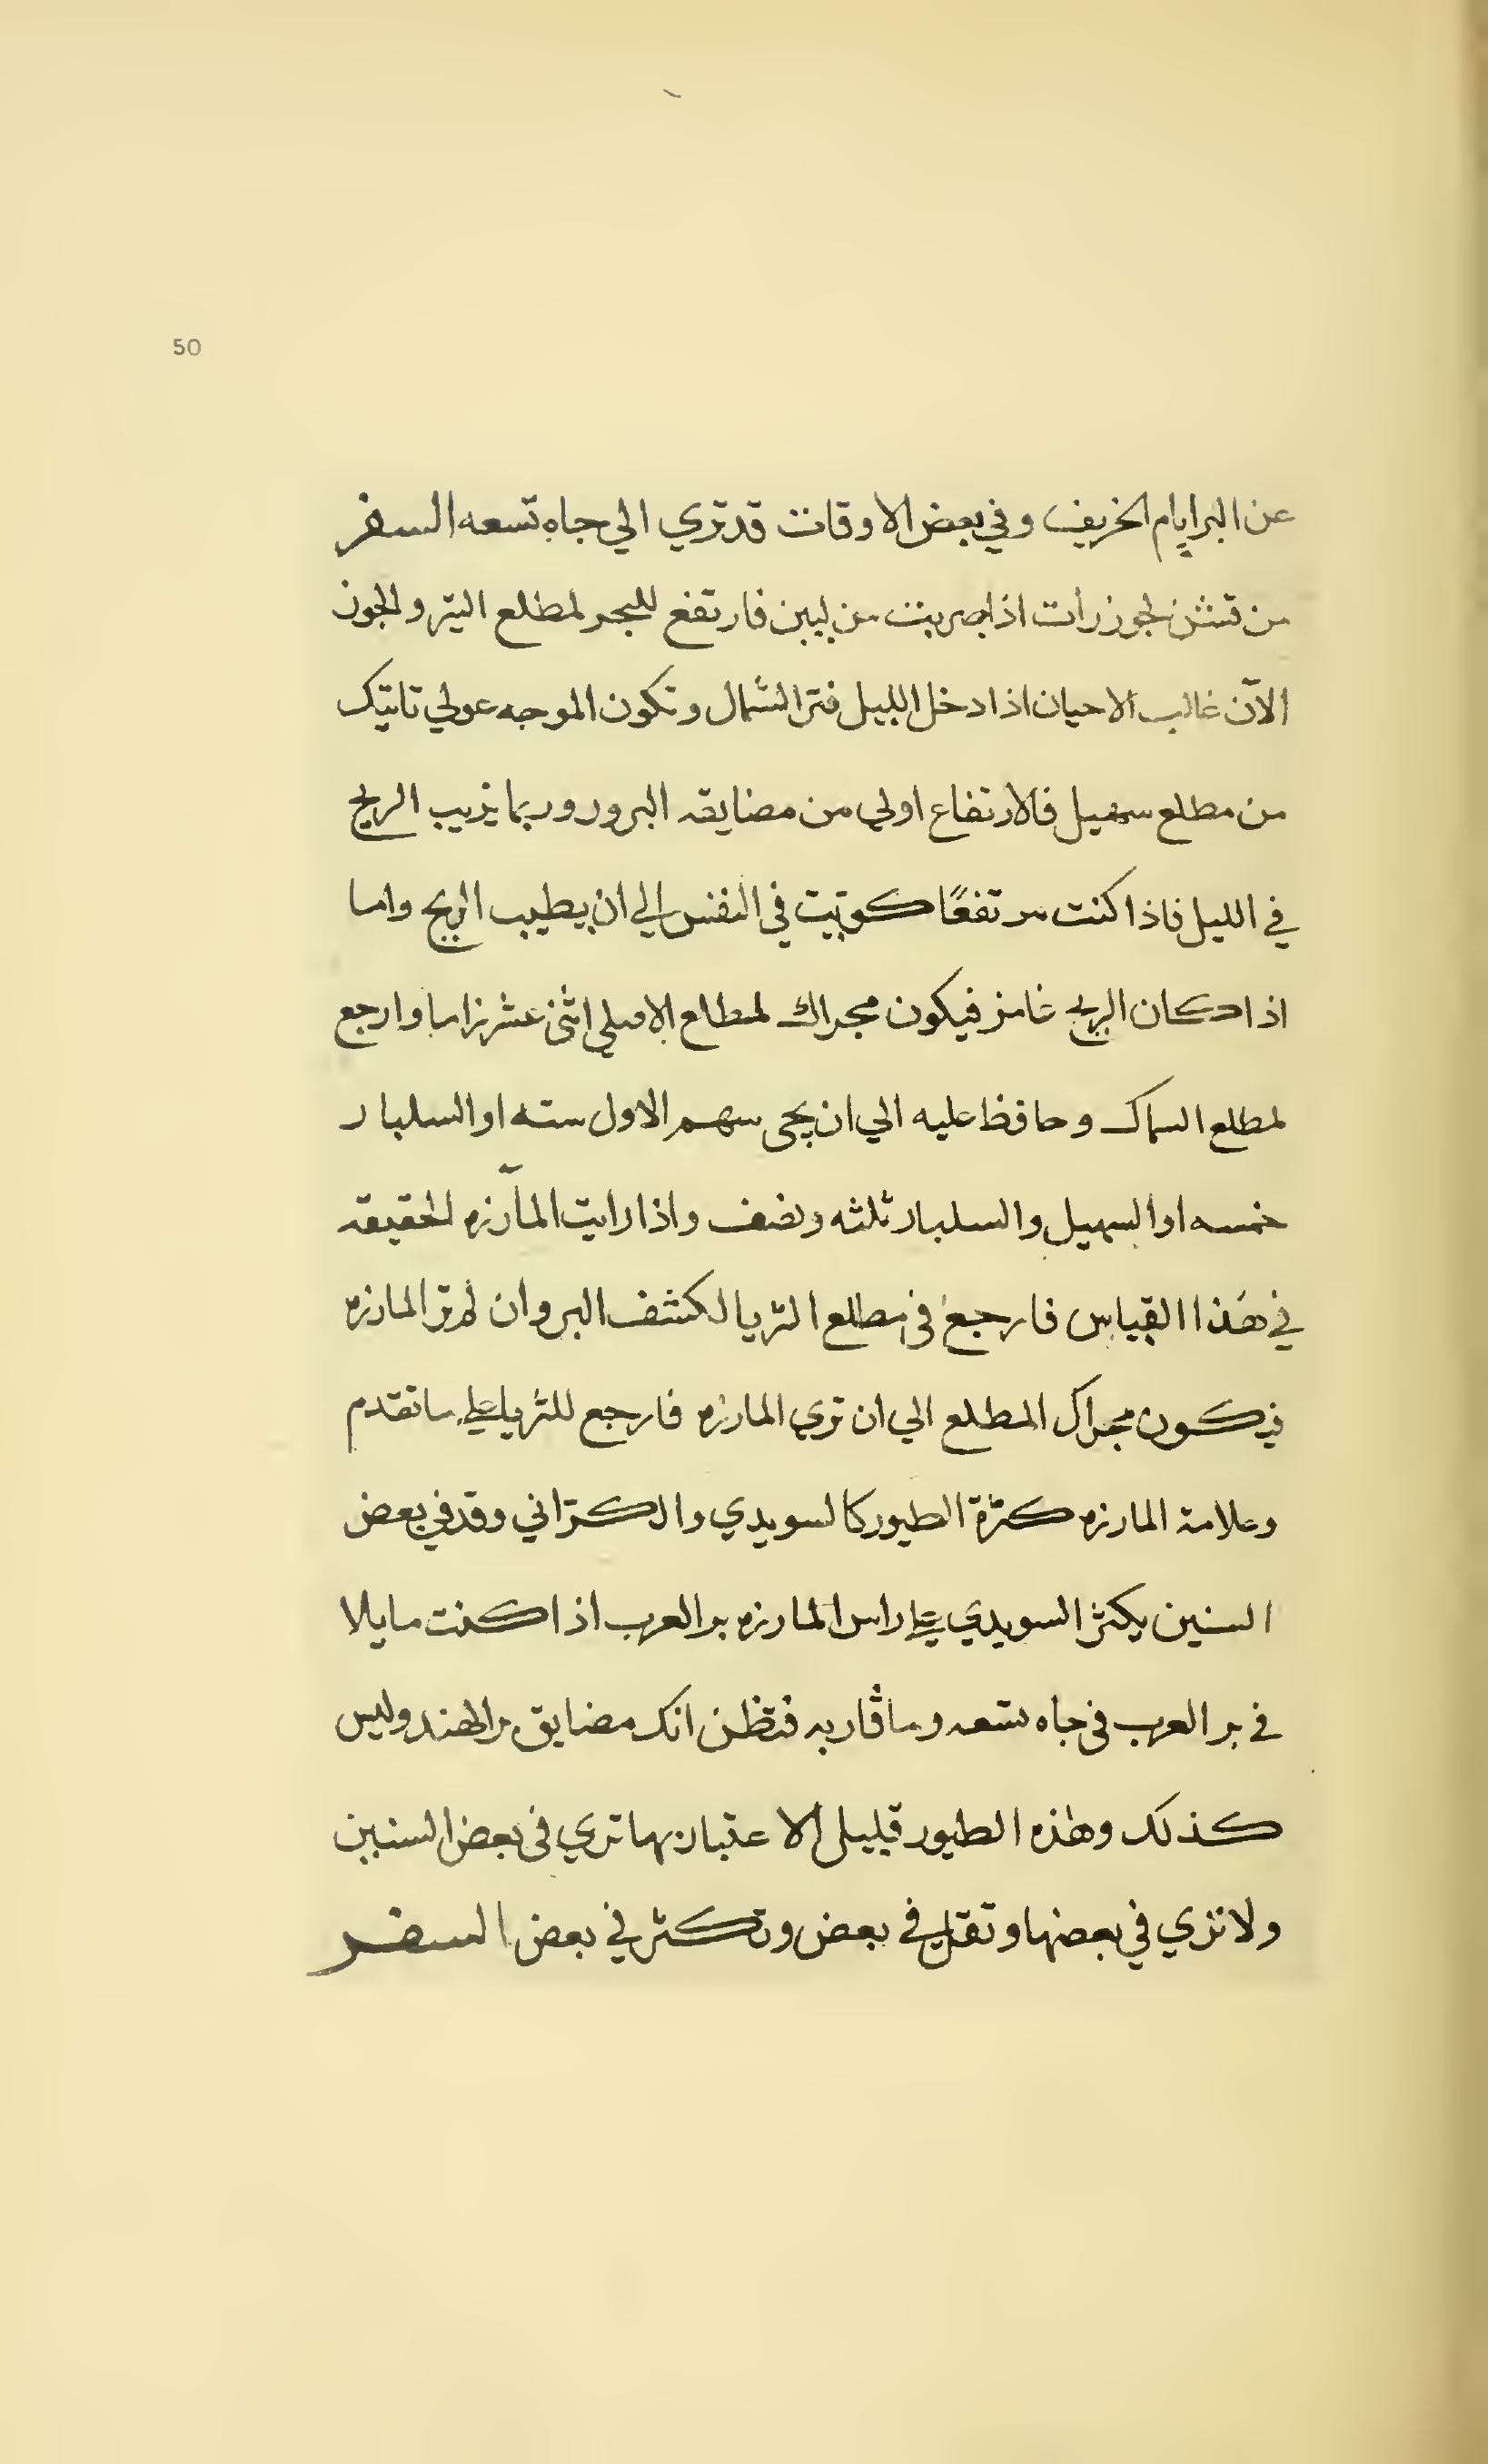 50
عن البر ايام الخريف وفي بعض الاوقات قد تري الي جاه تسعه السفر
من قشن لجوزرات اذا ضربت من ليبن فارتفع للبحر لمطلع التير والجون
الآن غالب الاحيان اذا دخل الليل فتر الشمال وتكون الموجه عولي تاتيك
من مطلع سهيل فالارتفاع اولي من مضايقه البرور وربما يذيب الريح
في الليل فاذا كنت مرتفعًا كوتيت في النفس الي ان يطيب الريح واما
اذا كان الريح غامز فيكون مجراك لمطلع الاصلي اثني عشر زاما وارجع
لمطلع السماك وحافظ عليه الي ان يجي سهم الاول سته او السلبار
خمسه او السهيل والسلبار ثلثه ونصف واذا رايت المآرزه الحقيقه
في هَذا القياس فارجع في مطلع الثريا لكشف البر وان لم تر المارزه
فيكون مجراك المطلع الي ان تري المارزه فارجع للثريا علي ما تقدم
وعلامة المارزه كثرة الطيور كالسويدي والكرّاني وقد في بعض
السنين يكثر السويدي علي راس المارزه بر العرب اذا كنت مايلا
في بر العرب في جاه تسعه وما قاربه فتظن انك مضايق بر الهند وليس
كذلك وهذه الطيور قليل الاعتبار بها تري في بعض السنين
ولا تري في بعضها وتقل في بعض وتكثر في بعض السفر